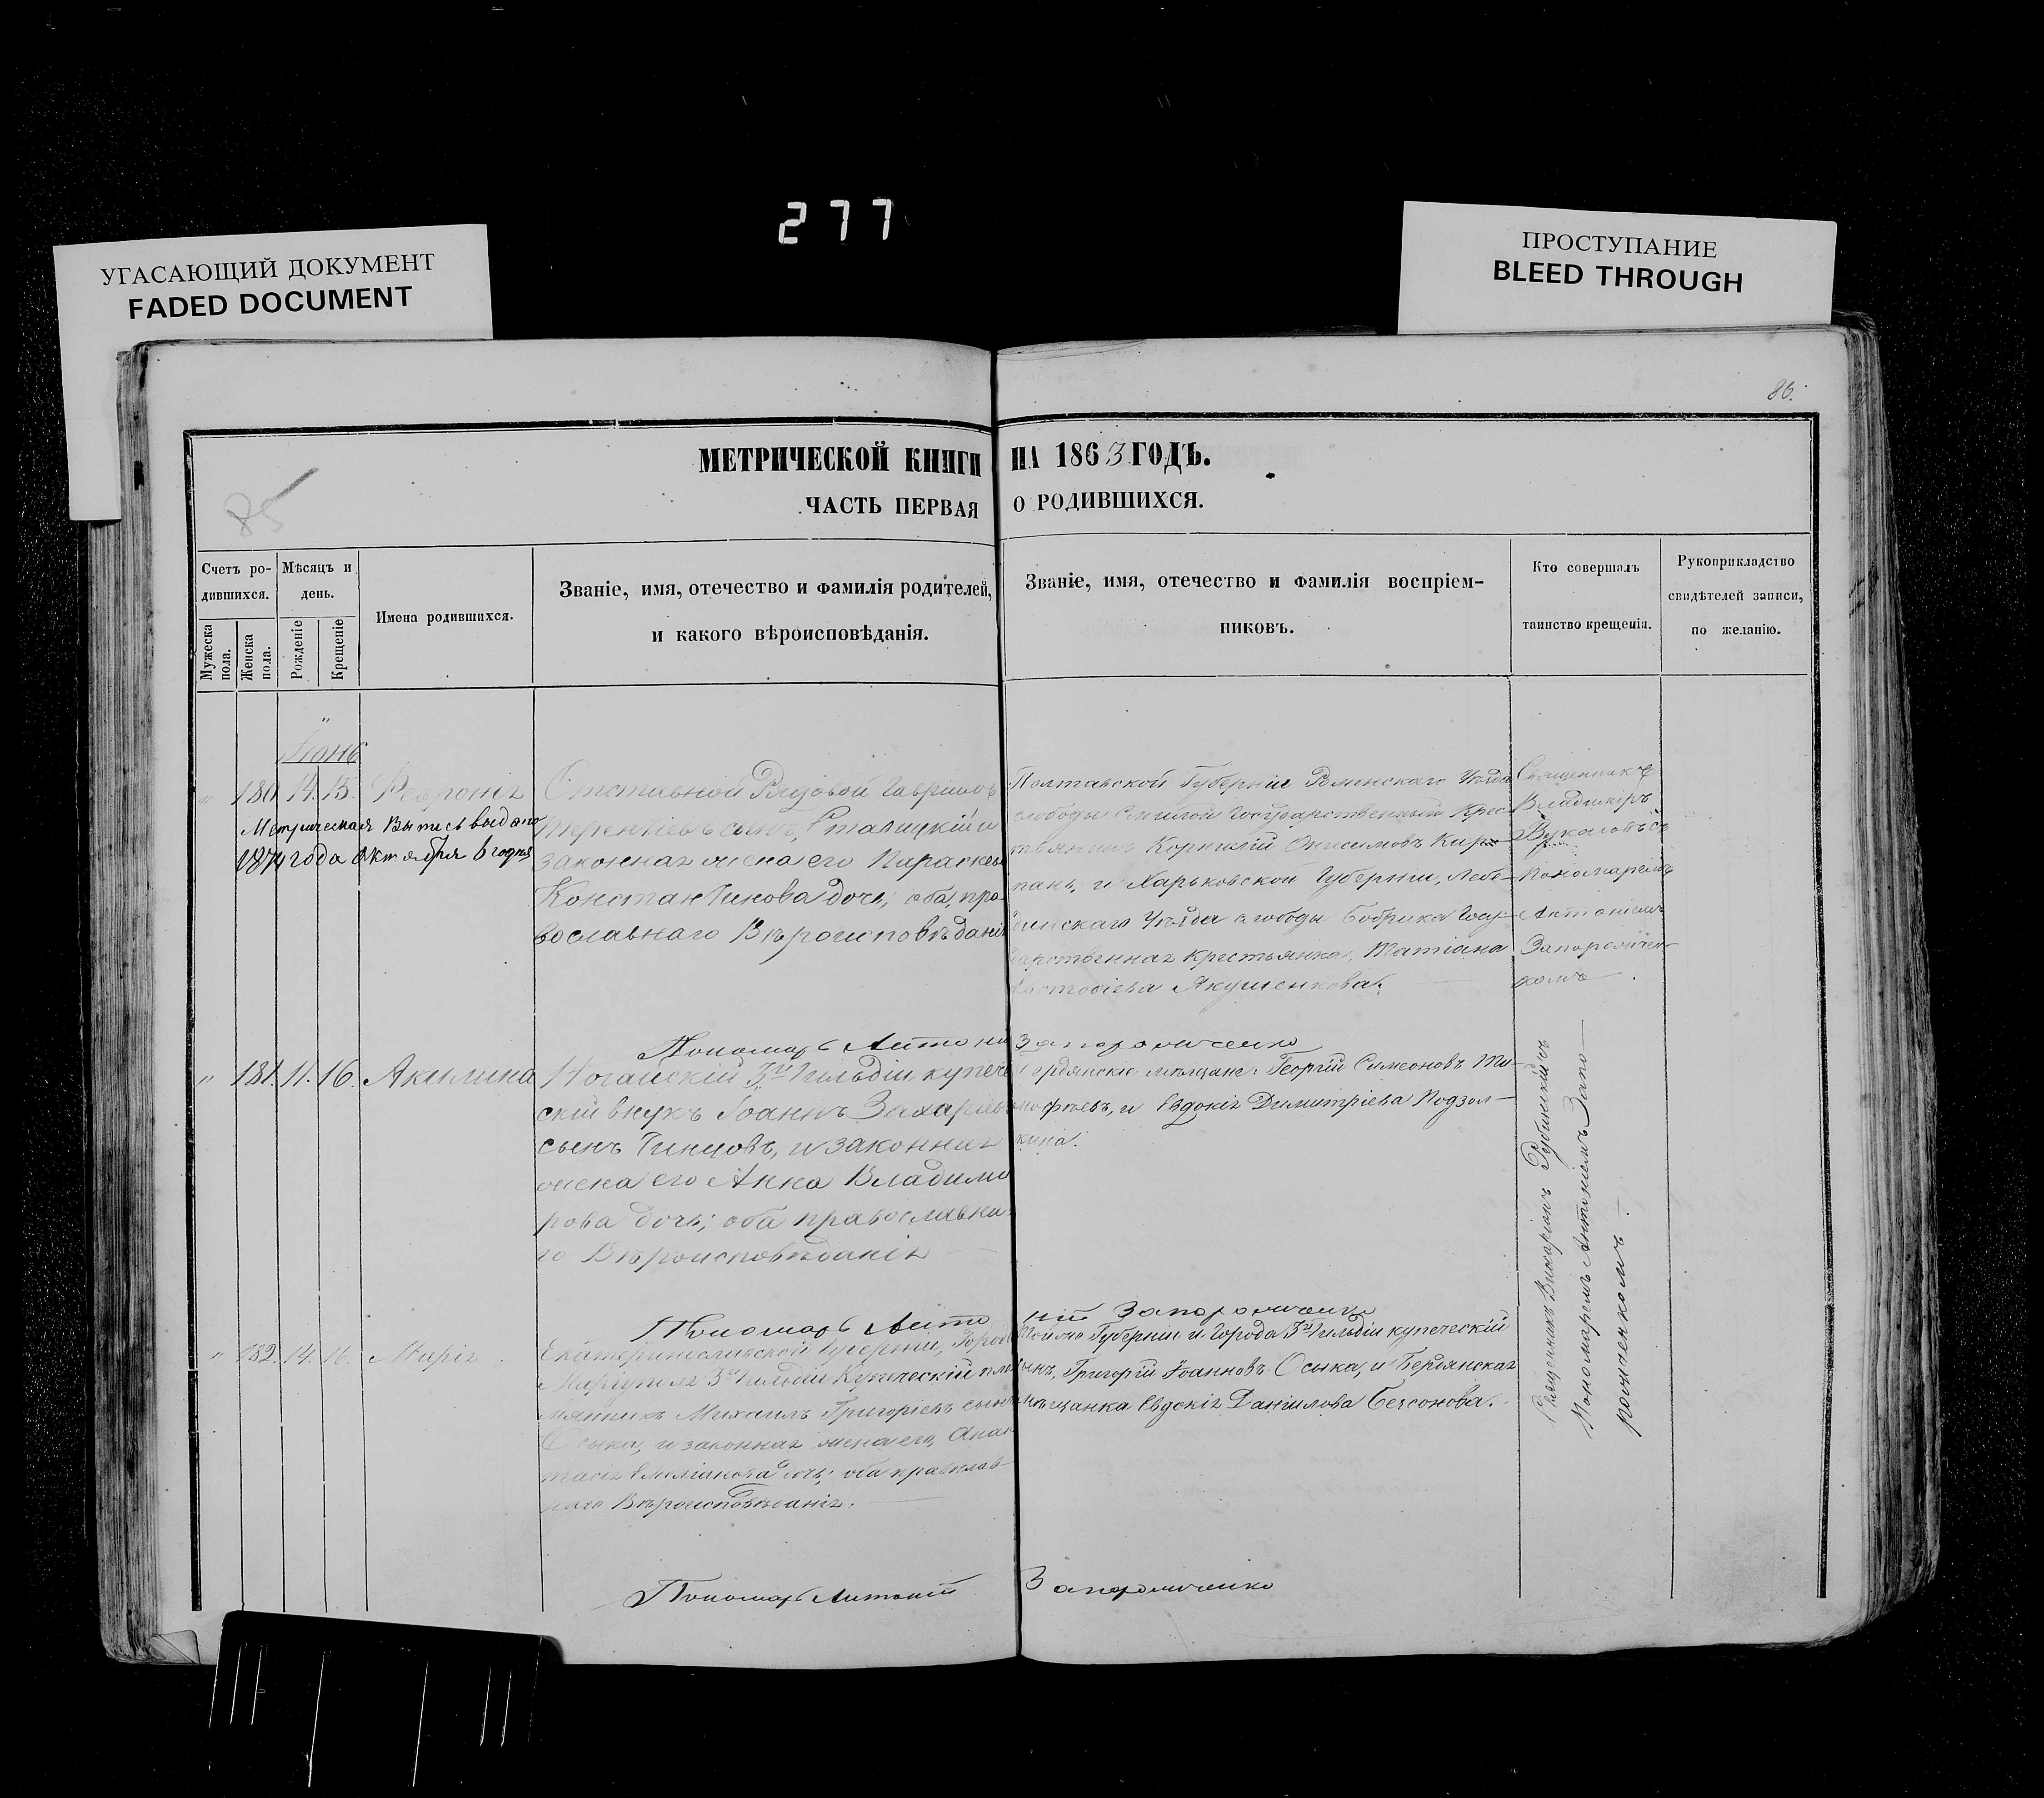 277
УГАСАЮЩИЙ ДОКУМЕНТ
FADED DOCUMENT
ПРОСТУПАНИЕ
BLEED THROUGH
86.
85
МЕТРИЧЕСКОЙ КНИГИ НА 1863 ГОДЪ.
ЧАСТЬ ПЕРВАЯ О РОДИВШИХСЯ.
Счетъ ро-
дившихся.
Мужеска пола.
Женска пола.
Мѣсяцъ и
день.
Рожденіе
Крещеніе
Имена родившихся.
Званіе, имя, отечество и фамилія родителей,
и какого вѣроисповѣданія.
Званіе, имя, отечество и фамилія воспріем-
никовъ.
Кто совершалъ
таинство крещенія.
Рукоприкладство
свидѣтелей записи,
по желанію.
Іюнь
" 180 14. 15. Феѵронія
Метрическая Выпись выдана
1874 года Октября 6 годня
Отставной Рядовой Гавріилъ
Терентіевъ сынъ, Сталицкій и
законная жена его Параскева
Константинова дочь; оба, пра-
вославнаго Вѣроисповѣданія
Полтавской Губерніи Роменскаго Уѣзда
слободы Смѣлой Государственный Крес-
тьянинъ Корнилій Онисимовъ Кир-
пань, и Харьковской Губерніи, Лебе-
динскаго Уѣзда слободы Бобрика Госу-
дарственная крестьянка, Татіана
Якушенкова.
Священникъ
Владиміръ
Вуколовъ съ
Пономаремъ
Антоніемъ
Запорожчен-
комъ.
Пономарь Антоній Запорожченко
" 181. 11. 16. Акилина
Ногайскій 3й Гильдіи купече-
скій внукъ Іоаннъ Захаріевъ
сынъ Тинцовъ, и законная
жена его Анна Владими-
рова дочь; оба православна-
го Вѣроисповѣданія
Бердянскіе мѣщане: Георгій Симеоновъ Ти-
мофѣевъ, и Евдокія Димитріева Подзол-
кина.
Священникъ Викаріонъ Рубинскій съ
Пономаремъ Антоніемъ Запо-
рожченкомъ.
Пономарь Антоній Запорожченко
" 182. 14. 16. Марія
Екатеринославской Губерніи, Города
Маріуполя 3й Гильдіи Купеческій пле-
мянникъ Михаилъ Григоріевъ сынъ
Осыка, и законная жена его, Анас-
тасія Емеліанова дочь; оба православ-
наго Вѣроисповѣданія.
Той же Губерніи и Города 3й Гильдіи купеческій
сынъ, Григорій Іоанновъ Осыка, и Бердянская
мѣщанка Евдокія Даніилова Безсонова.
Пономарь Антоній Запорожченко